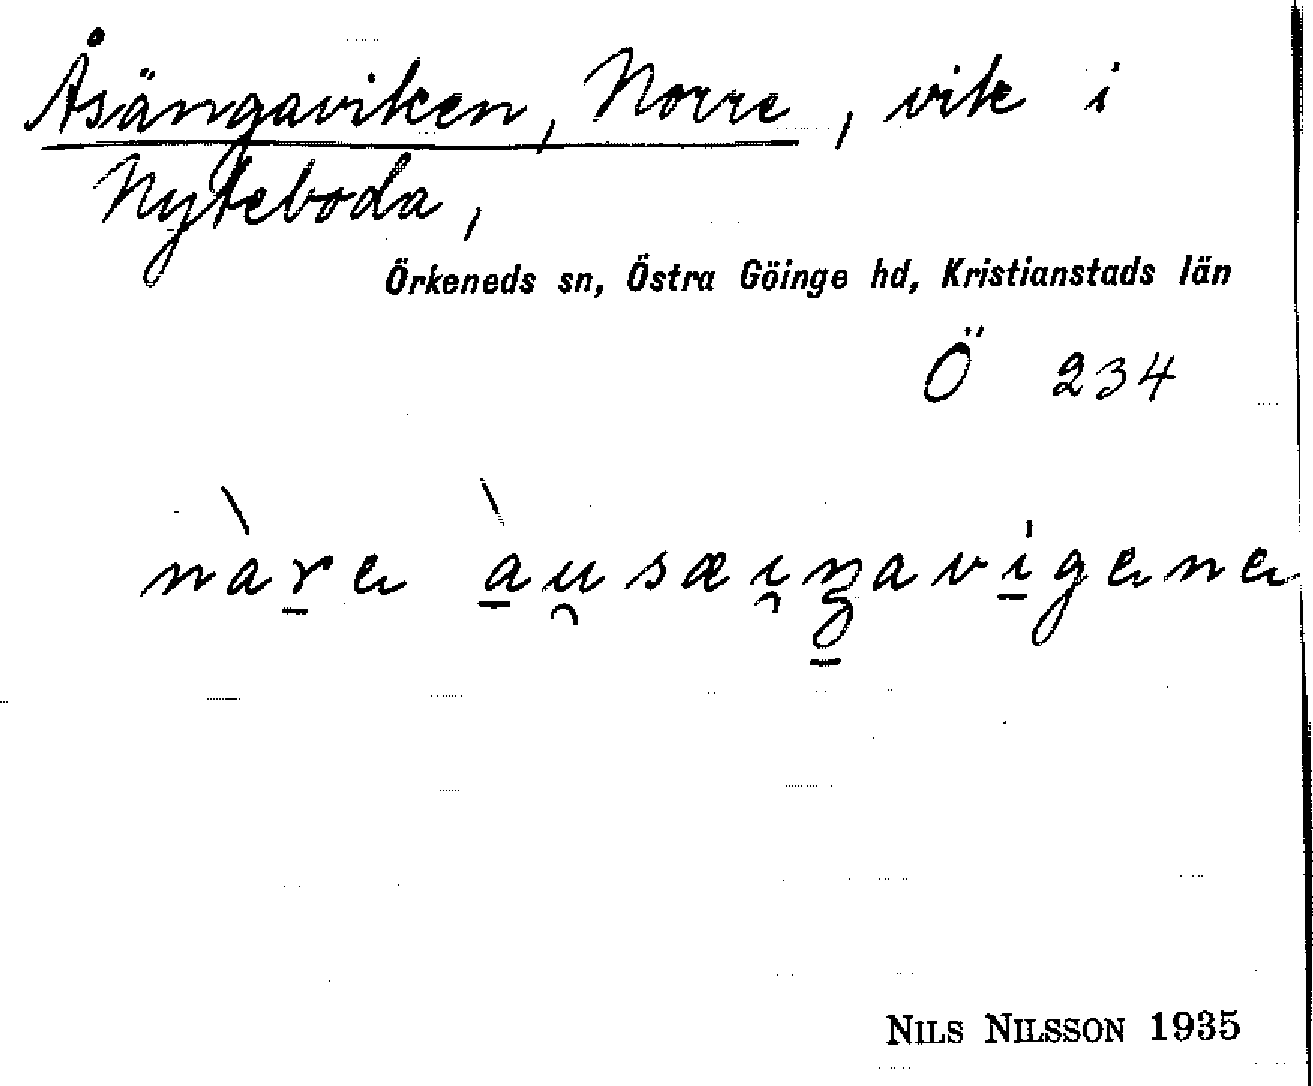 Åsängaviken, Norre, vik i
Nyteboda,
Örkeneds sn, Östra Göinge hd, Kristianstads län
Ö 234
nàre àusæiŋavigene
NILS NILSSON 1935